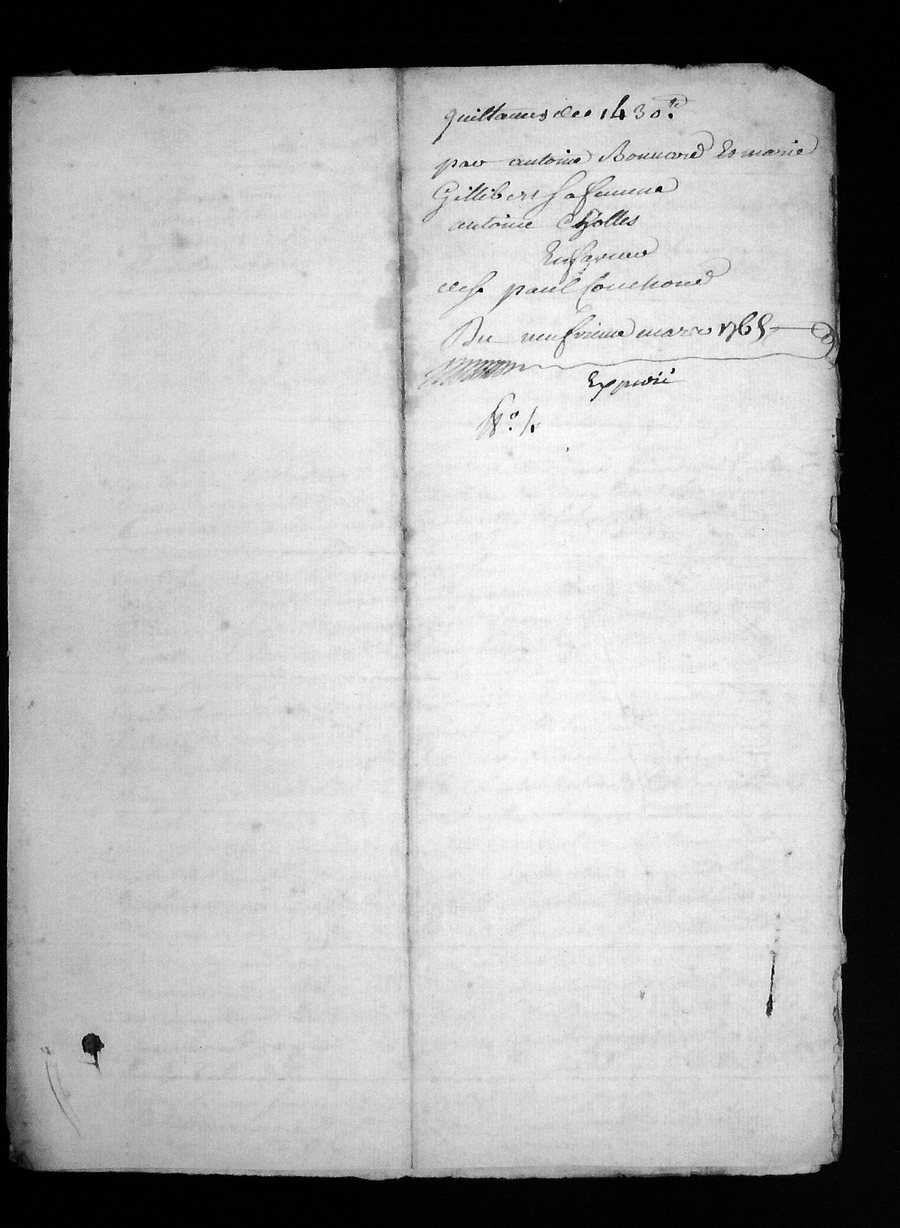 quittances de 1430 lt
par antoine Bonnard Et marie
Gillibert Sa femme
antoine
En faveur
de Sr paul Couchoud
Du neufvieme mars 1765
Expedié
No. 1.